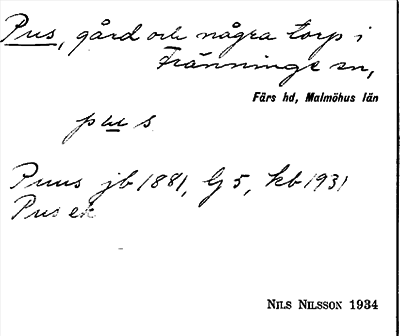 Pus, gård och några torp i
Tränninge sn,
Färs hd, Malmöhus län
pus
Puus jb 1881, G5, kb 1931
Pus ek
NILS NILSSON 1934